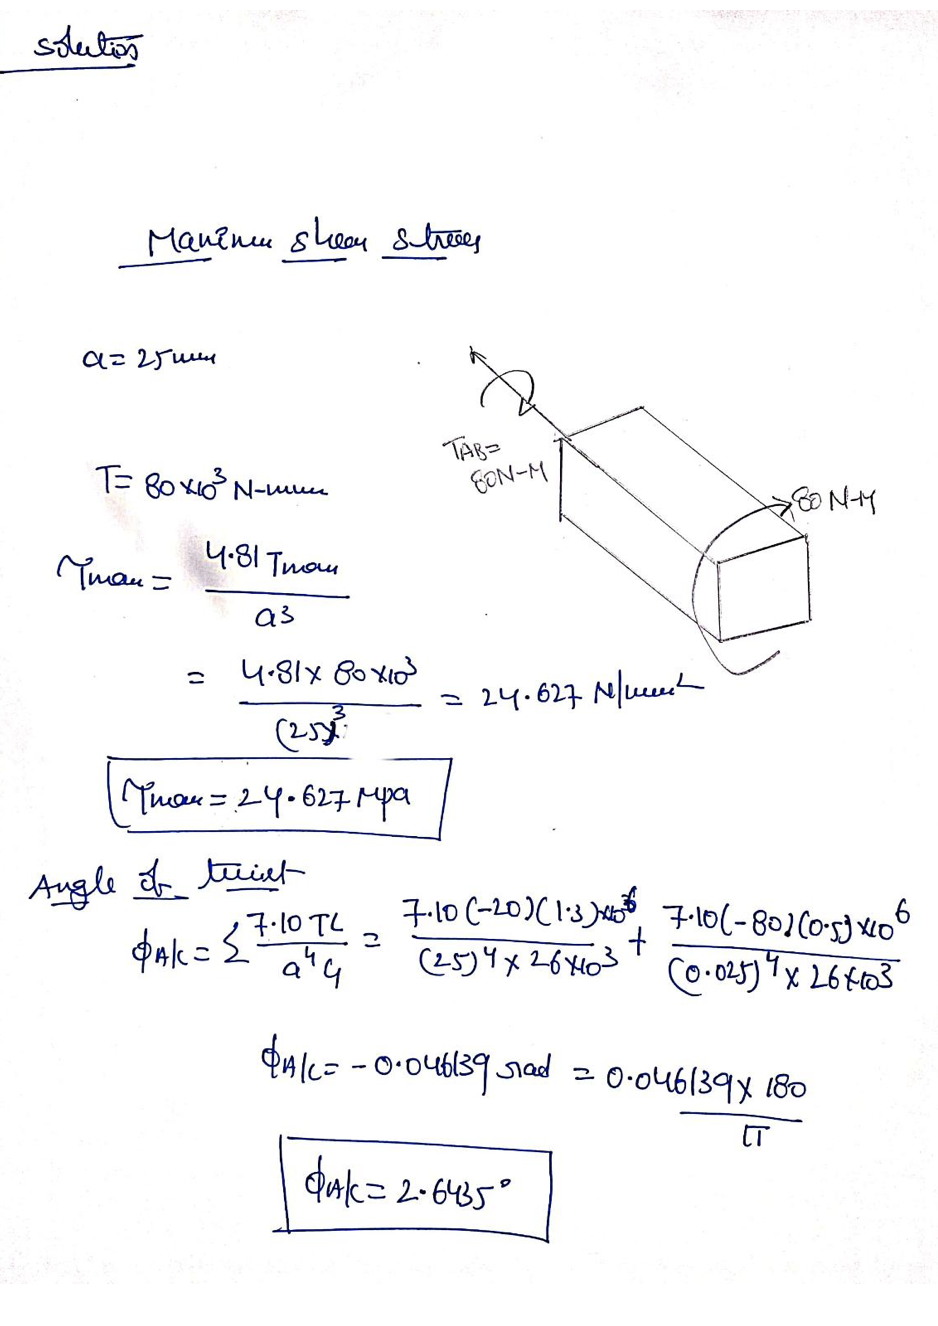 solution
Maximum shear stress
a = 25mm
TAB =
80N-M
80 N-M
T = 80×10³ N-mm
τmax = 4.81 Tmax / a3
= 4.81 × 80×10³ / (25)³ = 24.627 N/mm²
τmax = 24.627 Mpa
Angle of twist
ϕA/c = Σ 7.10 TL / a⁴G = 7.10 (-20) (1.3) ×10⁶ / (25)⁴ × 26×10³ + 7.10 (-80) (0.5) ×10⁶ / (0.025)⁴ × 26×10³
ϕA/c = -0.046139 rad = 0.046139 × 180 / π
ϕA/c = 2.6435°